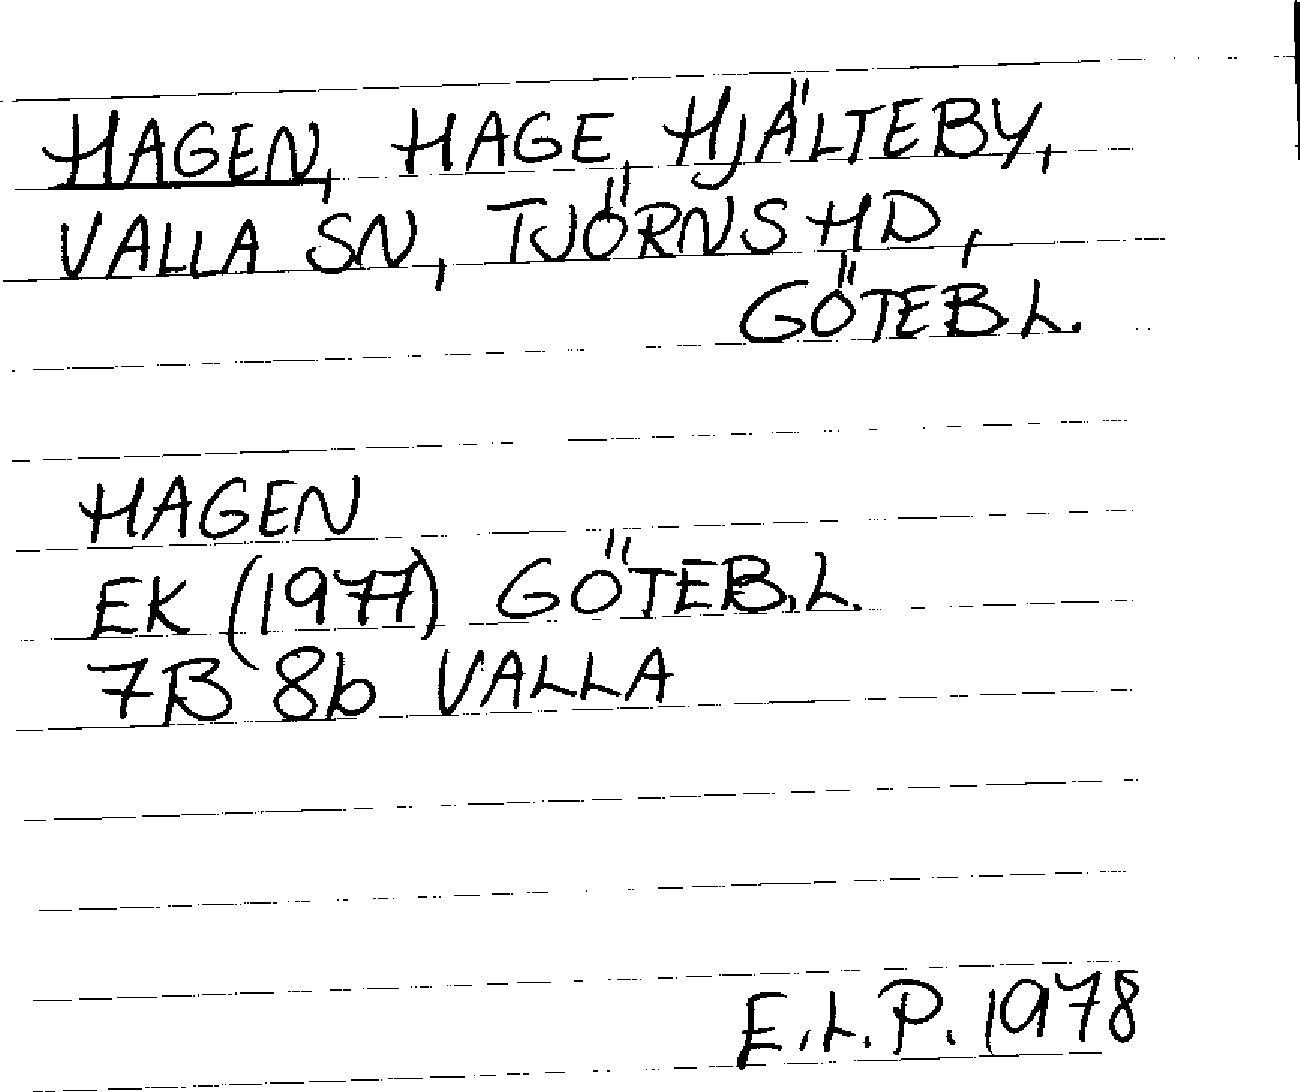 HAGEN, HAGE, HJÄLTEBY,
VALLA SN, TJÖRNS HD,
GÖTEB.L.
HAGEN
EK (1977) GÖTEB.L.
7B 8b VALLA
E.L.P. 1978